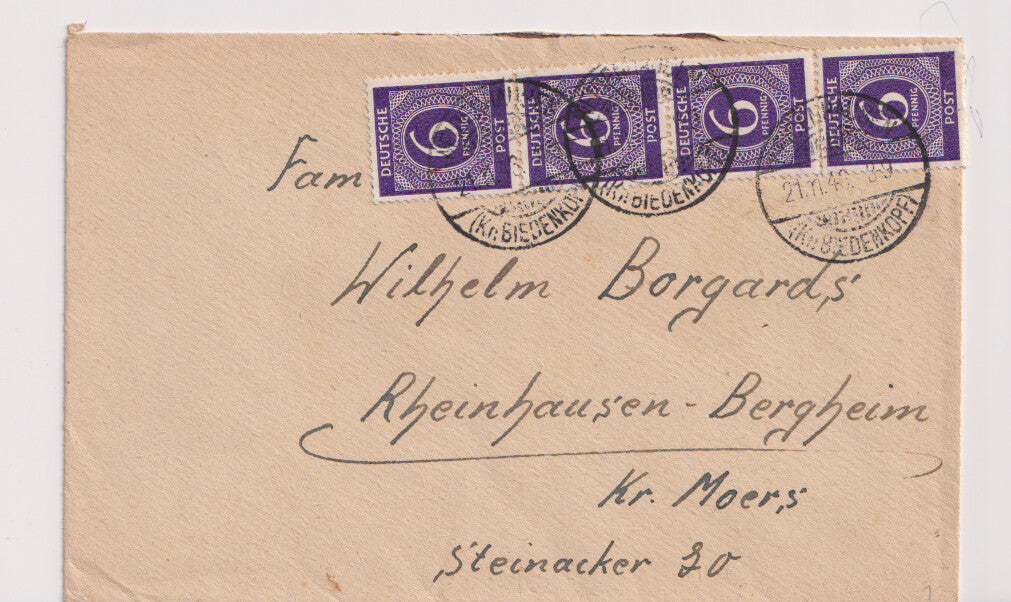 DEUTSCHE 6 PFENNIG POST
DEUTSCHE 6 PFENNIG POST
DEUTSCHE 6 PFENNIG POST
DEUTSCHE 6 PFENNIG POST
(Kr. BIEDENKOPF)
(Kr. BIEDENKOPF)
(Kr. BIEDENKOPF)
Fam
Wilhelm Borgards
Rheinhausen-Bergheim
Kr. Moers
Steinacker